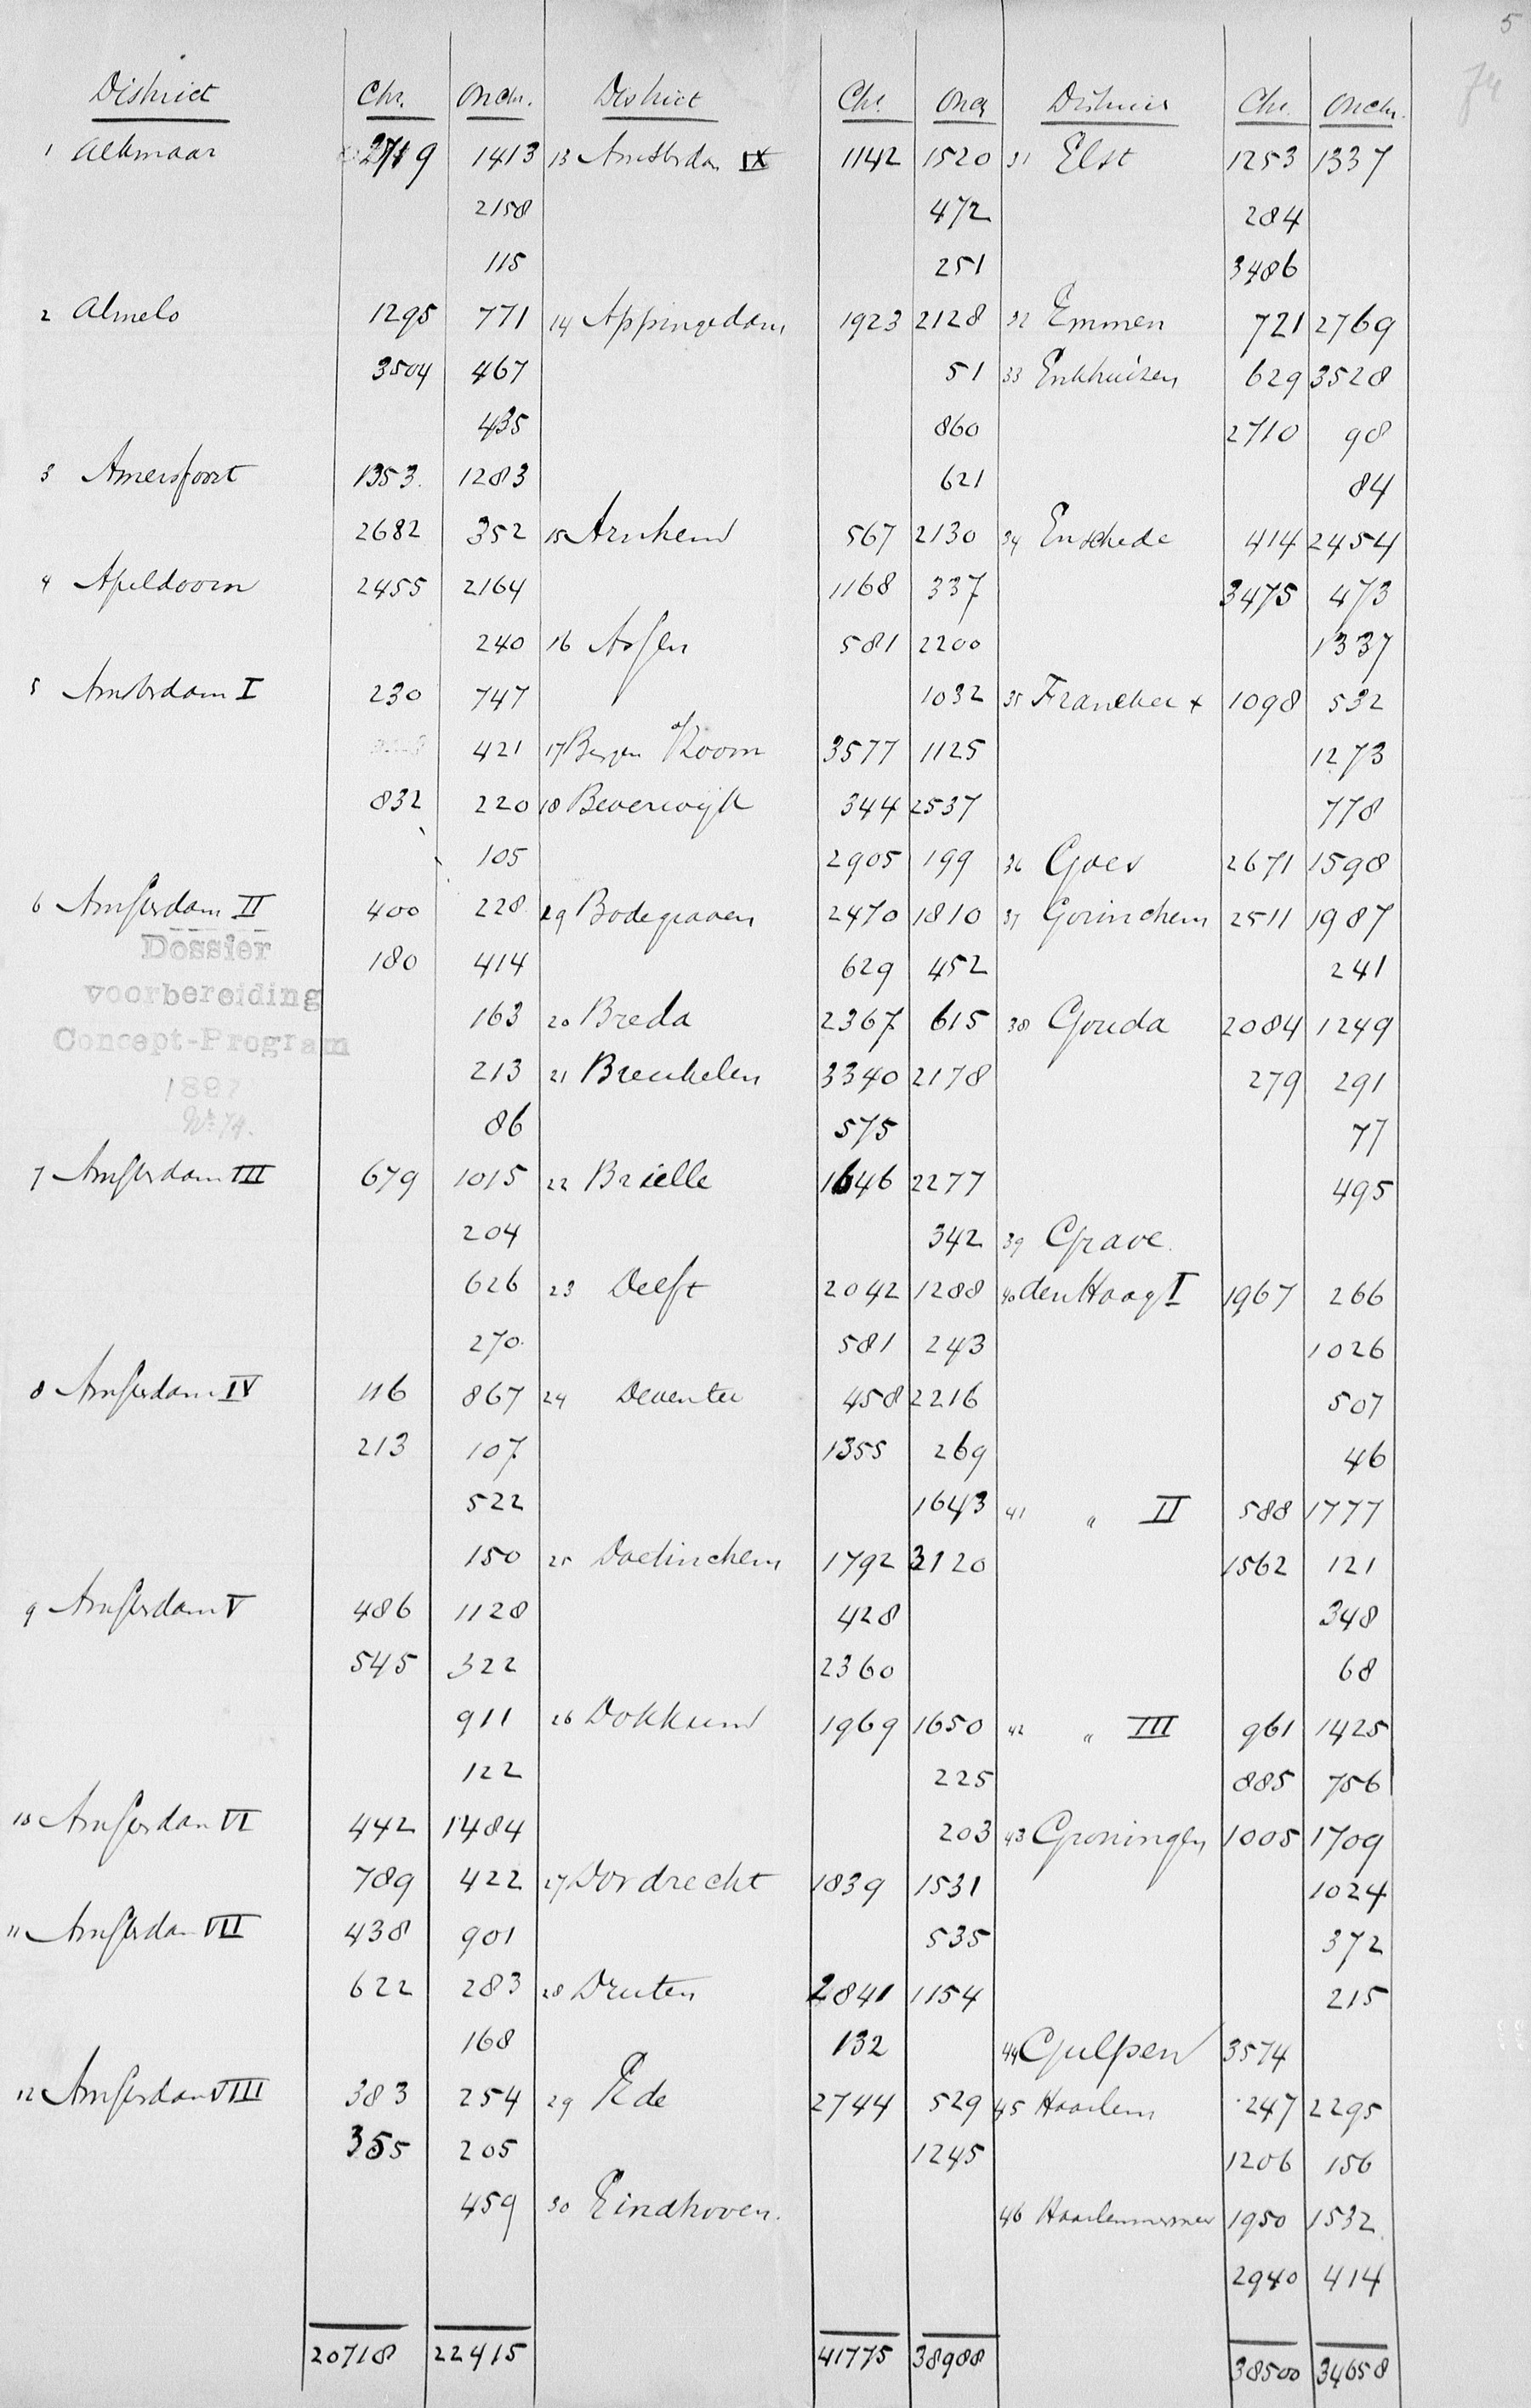 5
74
District Chr. Onchr. District Chr. Onch District Chr. Onchr.
1 Alkmaar 2719 1413 13 Amsterdam IX 1142 1520 31 Elst 1253 1337
2158 472 284
115 251 3486
2 Almelo 1295 771 14 Appingedam 1923 2128 32 Emmen 721 2769
3504 467 51 33 Enkhuizen 629 3528
435 860 2710 98
3 Amersfoort 1353. 1283 621 84
2682 352 15 Arnhem 567 2130 34 Enschede 414 2454
4 Apeldoorn 2455 2164 1168 337 3475 473
240 16 Assen 581 2200 1337
5 Amsterdam I 230 747 1032 35 Franeker x 1098 532
421 17 Bergen o/ Zoom 3577 1125 1273
832 220 18 Beverwijk 344 2537 778
105 2905 199 36 Goes 2671 1598
6 Amsterdam II 400 228 19 Bodegraven 2470 1810 37 Gorinchem 2511 1987
Dossier 180 414 629 452 241
voorbereiding
163 20 Breda 2367 615 38 Gouda 2084 1249
Concept-Program
213 21 Breukelen 3340 2178 279 291
1897
No 74.
86 575 77
7 Amsterdam III 679 1015 22 Brielle 1646 2277 495
204 342 39 Grave.
626 23 Delft 2042 1288 40 den Haag I 1967 266
270. 581 243 1026
8 Amsterdam IV 116 867 24 Deventer 458 2216 507
213 107 1355 269 46
522 1643 41 " II 588 1777
150 25 Doetinchem 1792 3120 1562 121
9 Amsterdam V 486 1128 428 348
545 322 2360 68
911 26 Dokkum 1969 1650 42 " III 961 1425
122 225 885 756
10 Amsterdam VI 442 1484 203 43 Groningen 1005 1709
789 422 27 Dordrecht 1839 1531 1024
11 Amsterdam VII 438 901 535 372
622 283 28 Druten 2841 1154 215
168 132 44 Gulpen 3574
12 Amsterdam VIII 383 254 29 Ede 2744 529 45 Haarlem 247 2295
355 205 1245 1206 156
459 30 Eindhoven. 46 Haarlemmermeer 1950 1532
2940 414
20718 22415 41775 38988 38500 34658